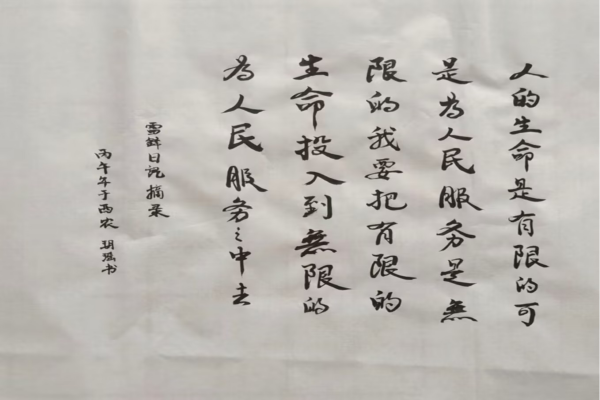 人的生命是有限的可
是为人民服务是無
限的我要把有限的
生命投入到無限的
为人民服务之中去
雷鋒日记摘录
丙午年于西农 玥泓书